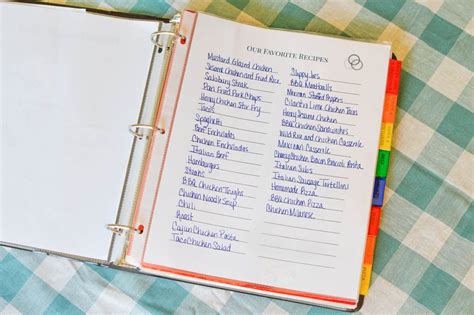 OUR FAVORITE RECIPES
Mustard Glazed Chicken
Sesame Chicken and Fried Rice
Salisbury Steak
Pan Fried Pork Chops
Honey Chicken Stir Fry
Tacos
Spaghetti
Beef Enchiladas
Chicken Enchiladas
Italian Beef
Hamburgers
Steaks
BBQ Chicken Thighs
Chicken Noodle Soup
Chili
Roast
Cajun Chicken Pasta
Taco Chicken Salad
Sloppy Joes
BBQ Meatballs
Mexican Stuffed Peppers
Cilantro Lime Chicken Tacos
Honey Sesame Chicken
BBQ Chicken Sandwiches
Wild Rice and Chicken Casserole
Mexican Casserole
Cheesy Chicken Bacon Broccoli Pasta
Italian Subs
Italian Sausage Tortellini
Homemade Pizza
BBQ Chicken Pizza
Chicken Milanese